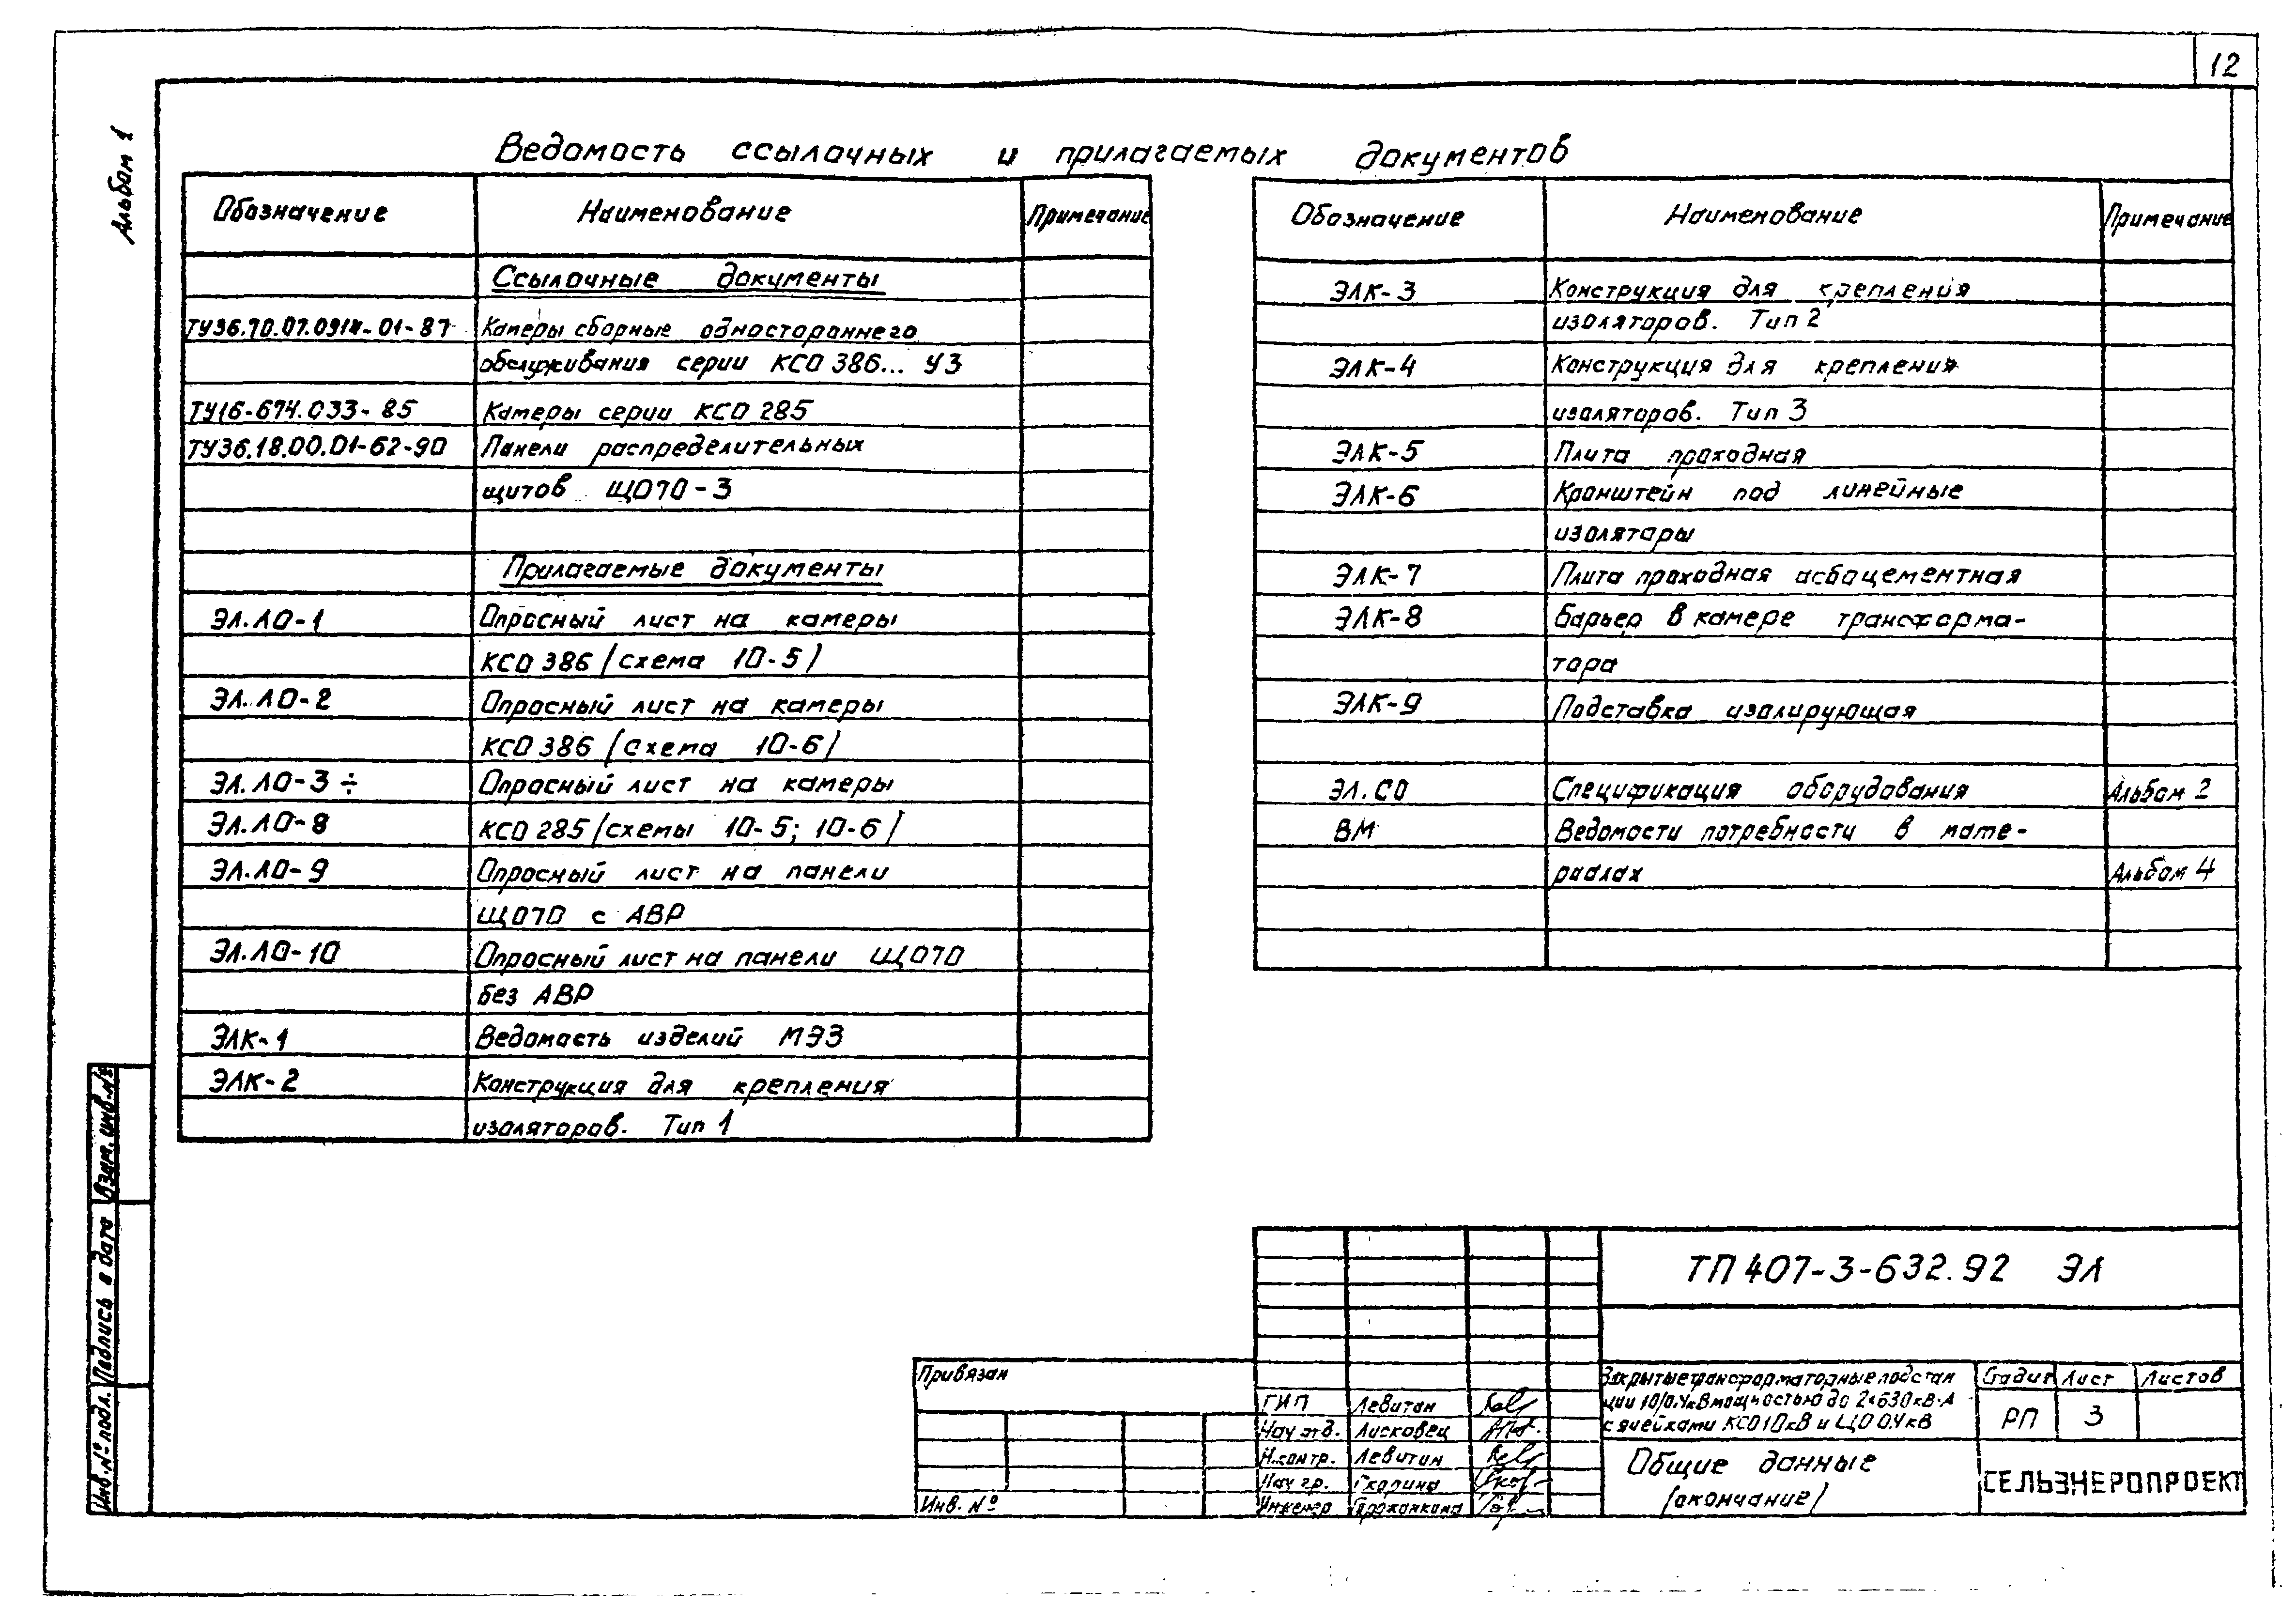 12
Альбом 1
Ведомость ссылочных и прилагаемых документов
Обозначение Наименование Примечание
Ссылочные документы
Камеры сборные одностороннего
обслуживания серии КСО 386... У3
ТУ16-674.033-85 Камеры серии КСО 285
ТУ36.18.00.01-62-90 Панели распределительных
щитов ЩО70-3
Прилагаемые документы
ЭЛ.ЛО-1 Опросный лист на камеры
КСО 386 /схема 10-5/
ЭЛ.ЛО-2 Опросный лист на камеры
КСО 386 /схема 10-6/
ЭЛ.ЛО-3 ÷ Опросный лист на камеры
ЭЛ.ЛО-8 КСО 285 /схемы 10-5; 10-6/
ЭЛ.ЛО-9 Опросный лист на панели
ЩО70 с АВР
ЭЛ.ЛО-10 Опросный лист на панели ЩО70
без АВР
ЭЛК-1 Ведомость изделий МЭЗ
ЭЛК-2 Конструкция для крепления
изоляторов. Тип 1
Обозначение Наименование Примечание
ЭЛК-3 Конструкция для крепления
изоляторов. Тип 2
ЭЛК-4 Конструкция для крепления
изоляторов. Тип 3
ЭЛК-5 Плита проходная
ЭЛК-6 Кронштейн под линейные
изоляторы
ЭЛК-7 Плита проходная асбоцементная
ЭЛК-8 Барьер в камере трансформа-
тора
ЭЛК-9 Подставка изолирующая
ЭЛ.СО Спецификация оборудования Альбом 2
ВМ Ведомости потребности в мате-
риалах Альбом 4
Взам. инв.№
Подпись и дата
Инв. № подл.
Привязан
Инв. №
ТП 407-3-632.92 ЭЛ
ГИП Левитин
Нач отд. Лисковец
Н.контр. Левитин
Нач гр. Скорина
Инженер
Закрытые трансформаторные подстан
ции 10/0.4кВ мощностью до 2×630 кВ·А
с ячейками КСО 10 кВ и ЩО 0.4 кВ
Стадия Лист Листов
РП 3
Общие данные
/окончание/
СЕЛЬЭНЕРГОПРОЕКТ